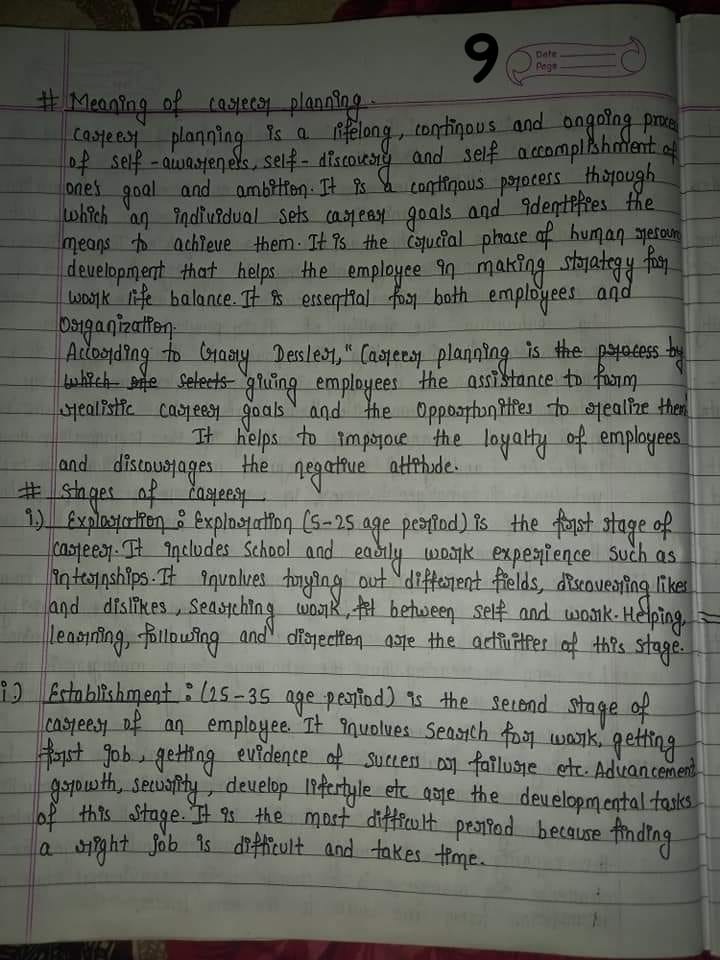 9
Date
Page
# Meaning of career planning.
Career planning is a lifelong, continous and ongoing proces
of self-awareness, self-discovery and self accomplishment of
one's goal and ambition. It is a continous process thorough
which an individual sets career goals and identifies the
means to achieve them. It is the crucial phase of human resourc
development that helps the employee in making strategy for
work life balance. It is essential for both employees and
organization.
According to Grary Dessler, "Career planning is the process by
which one selects giving employees the assistance to form
realistic career goals and the opportunities to realize them
It helps to improve the loyalty of employees
and discourages the negative attitude.
# Stages of career
i.) Exploration : Exploration (5-25 age period) is the first stage of
career. It includes School and early work experience such as
internships. It involves trying out different fields, discovering likes
and dislikes, searching work, fit between self and work. Helping,
learning, following and direction are the activities of this stage.
i.) Establishment : (25-35 age period) is the second stage of
career of an employee. It involves search for work, getting
first job, getting evidence of success or failure etc. Advancement
growth, security, develop lifestyle etc are the developmental tasks
of this stage. It is the most difficult period because finding
a right job is difficult and takes time.